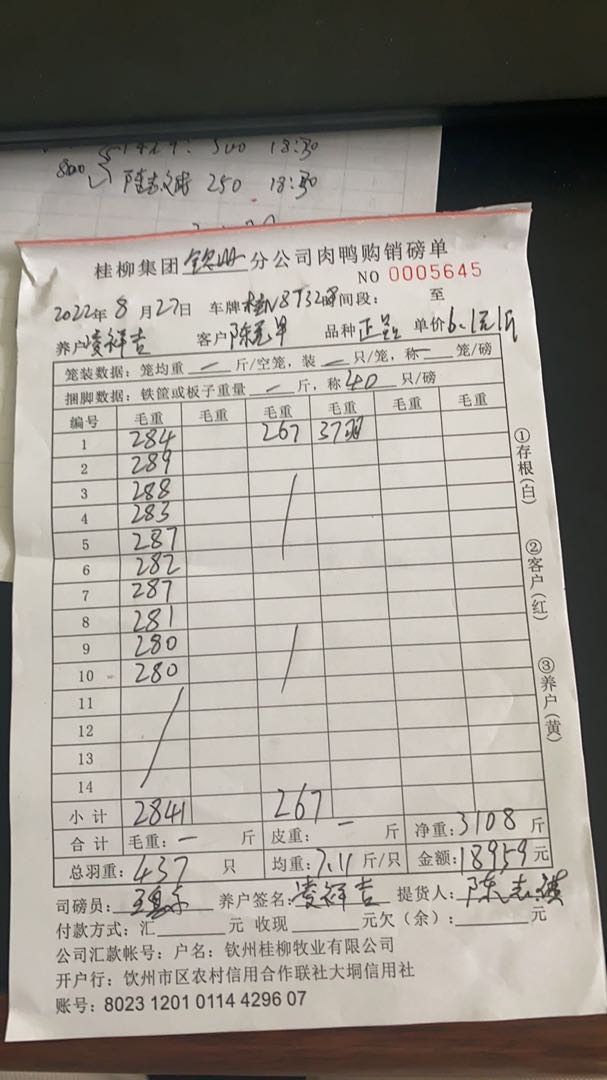 300 18:30
800 250 18:30
桂柳集团 钦州 分公司肉鸭购销磅单
NO 0005645
2022年 8 月 27日 车牌 时间段: 至
养户 凌祥吉 客户 品种 单价 6.1元/斤
笼装数据: 笼均重 — 斤/空笼, 装 — 只/笼, 称 — 笼/磅
捆脚数据: 铁筐或板子重量 — 斤, 称 40 只/磅
编号 毛重 毛重 毛重 毛重 毛重 毛重
1 284 267 37羽
2 289
3 288
4 283
5 287
6 282
7 287
8 281
9 280
10 280
11
12
13
14
小计 2841 267
合计 毛重: — 斤 皮重: — 斤 净重: 3108 斤
总羽重: 437 只 均重: 7.11 斤/只 金额: 18959 元
司磅员: 养户签名: 凌祥吉 提货人:
付款方式: 汇 元 收现 元欠(余): 元
公司汇款帐号: 户名: 钦州桂柳牧业有限公司
开户行: 饮州市区农村信用合作联社大垌信用社
账号: 8023 1201 0114 4296 07
①存根(白)
②客户(红)
③养户(黄)